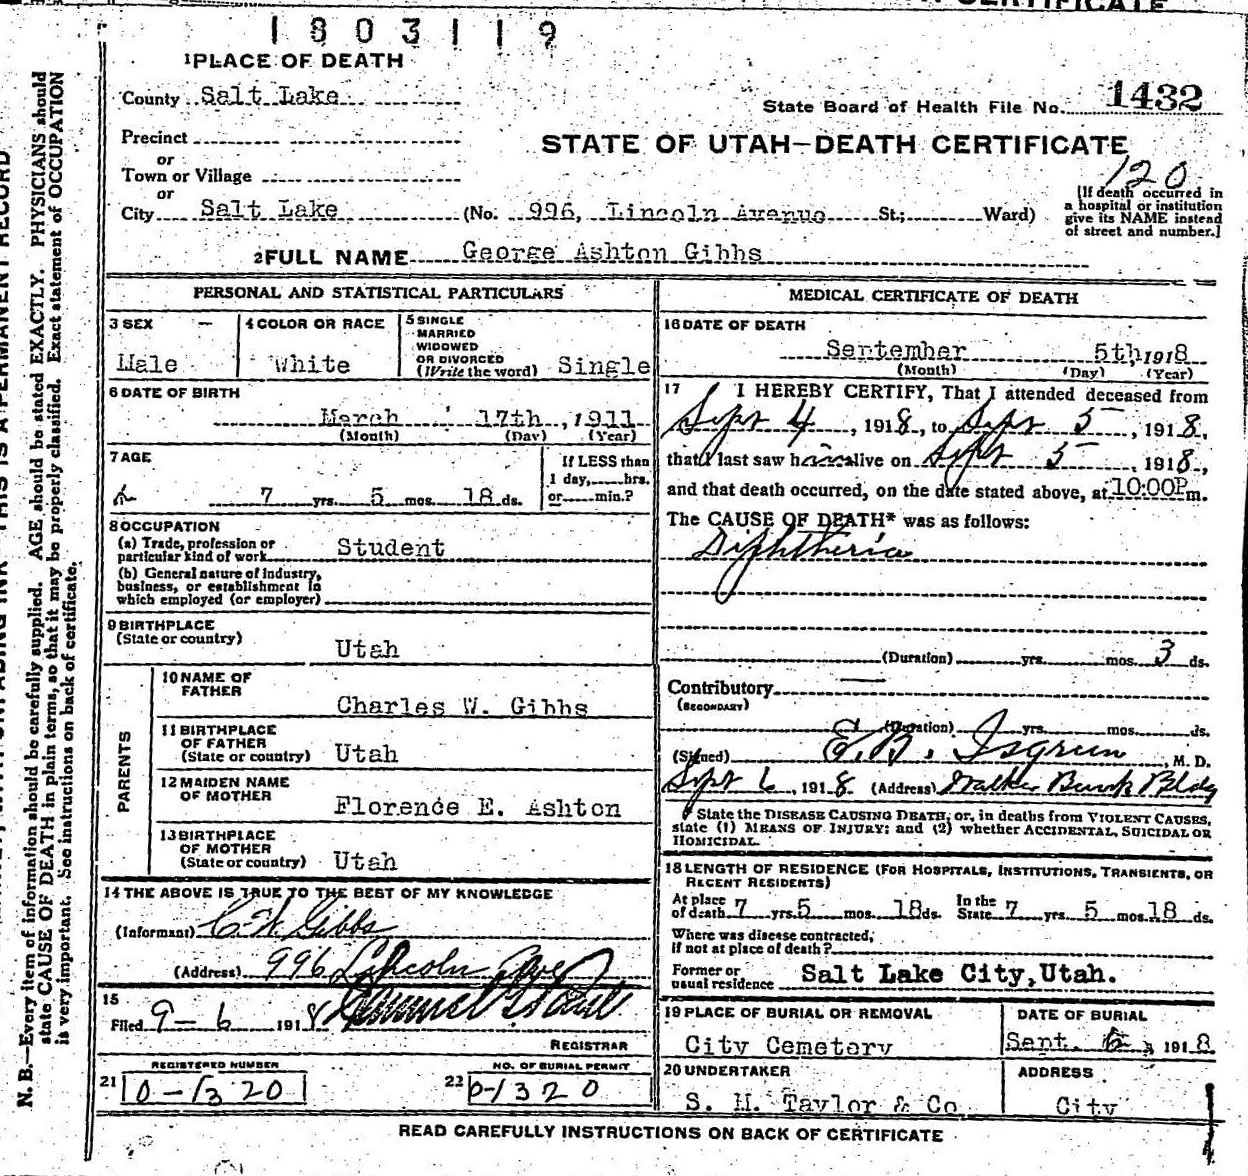 CERTIFICATE
1803119
1 PLACE OF DEATH
County Salt Lake
State Board of Health File No. 1432
Precinct
or
Town or Village
or
STATE OF UTAH—DEATH CERTIFICATE
120
City Salt Lake (No. 996, Lincoln Avenue St.; Ward)
[If death occurred in
a hospital or institution
give its NAME instead
of street and number.]
2 FULL NAME George Ashton Gibbs
PERSONAL AND STATISTICAL PARTICULARS
3 SEX
Male
4 COLOR OR RACE
White
5 SINGLE
MARRIED
WIDOWED
OR DIVORCED
(Write the word) Single
6 DATE OF BIRTH
March 17th, 1911
(Month) (Day) (Year)
7 AGE
7 yrs. 5 mos. 18 ds.
If LESS than
1 day, hrs.
or min.?
8 OCCUPATION
(a) Trade, profession or
particular kind of work Student
(b) General nature of industry,
business, or establishment in
which employed (or employer)
9 BIRTHPLACE
(State or country)
Utah
PARENTS
10 NAME OF
FATHER
Charles W. Gibbs
11 BIRTHPLACE
OF FATHER
(State or country) Utah
12 MAIDEN NAME
OF MOTHER
Florence E. Ashton
13 BIRTHPLACE
OF MOTHER
(State or country) Utah
14 THE ABOVE IS TRUE TO THE BEST OF MY KNOWLEDGE
(Informant) C. W. Gibbs
(Address) 996 Lincoln Ave
15
Filed 9-6 1918
REGISTRAR
REGISTERED NUMBER
21 0-1320
NO. OF BURIAL PERMIT
22 0-1320
MEDICAL CERTIFICATE OF DEATH
16 DATE OF DEATH
September 5th, 1918
(Month) (Day) (Year)
17 I HEREBY CERTIFY, That I attended deceased from
Sept 4, 1918, to Sept 5, 1918,
that I last saw him alive on Sept 5, 1918,
and that death occurred, on the date stated above, at 10:00P m.
The CAUSE OF DEATH* was as follows:
Diphtheria
(Duration) yrs. mos. 3 ds.
Contributory
(SECONDARY)
(Duration) yrs. mos. ds.
(Signed) E. B. Isgreen, M. D.
Sept 6, 1918 (Address) Walker Bank Bldg
* State the DISEASE CAUSING DEATH; or, in deaths from VIOLENT CAUSES,
state (1) MEANS OF INJURY; and (2) whether ACCIDENTAL, SUICIDAL OR
HOMICIDAL.
18 LENGTH OF RESIDENCE (FOR HOSPITALS, INSTITUTIONS, TRANSIENTS, OR
RECENT RESIDENTS)
At place
of death 7 yrs. 5 mos. 18 ds.
In the
State 7 yrs. 5 mos. 18 ds.
Where was disease contracted,
if not at place of death?
Former or
usual residence Salt Lake City, Utah.
19 PLACE OF BURIAL OR REMOVAL
City Cemetery
DATE OF BURIAL
Sept. 6, 1918
20 UNDERTAKER
S. M. Taylor & Co
ADDRESS
City
READ CAREFULLY INSTRUCTIONS ON BACK OF CERTIFICATE
THIS IS A PERMANENT RECORD
N. B.—Every item of information should be carefully supplied. AGE should be stated EXACTLY. PHYSICIANS should
state CAUSE OF DEATH in plain terms, so that it may be properly classified. Exact statement of OCCUPATION
is very important. See instructions on back of certificate.